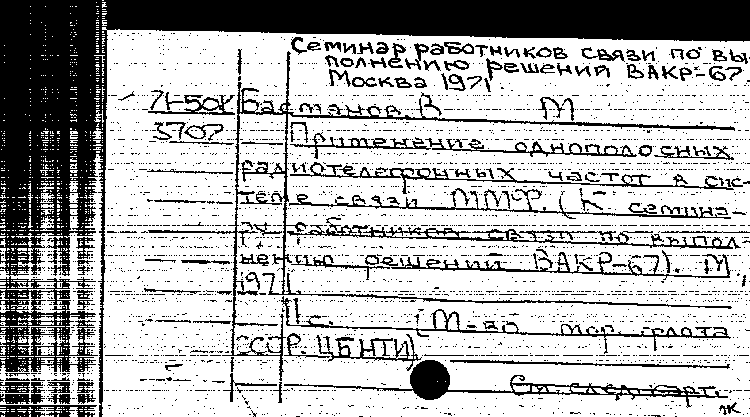 Семинар работников связи по вы-
полнению решений ВАКР-67.
Москва 1971.
71-50К Бастанов, В М
3707 Применение однополосных
радиотелефонных частот в сис-
теме связи ММФ. (К семина-
ру работников связи по выпол-
нению решений ВАКР-67). М,
1971.
11 с. (М-во мор. флота
СССР. ЦБНТИ)
См. след. карт.